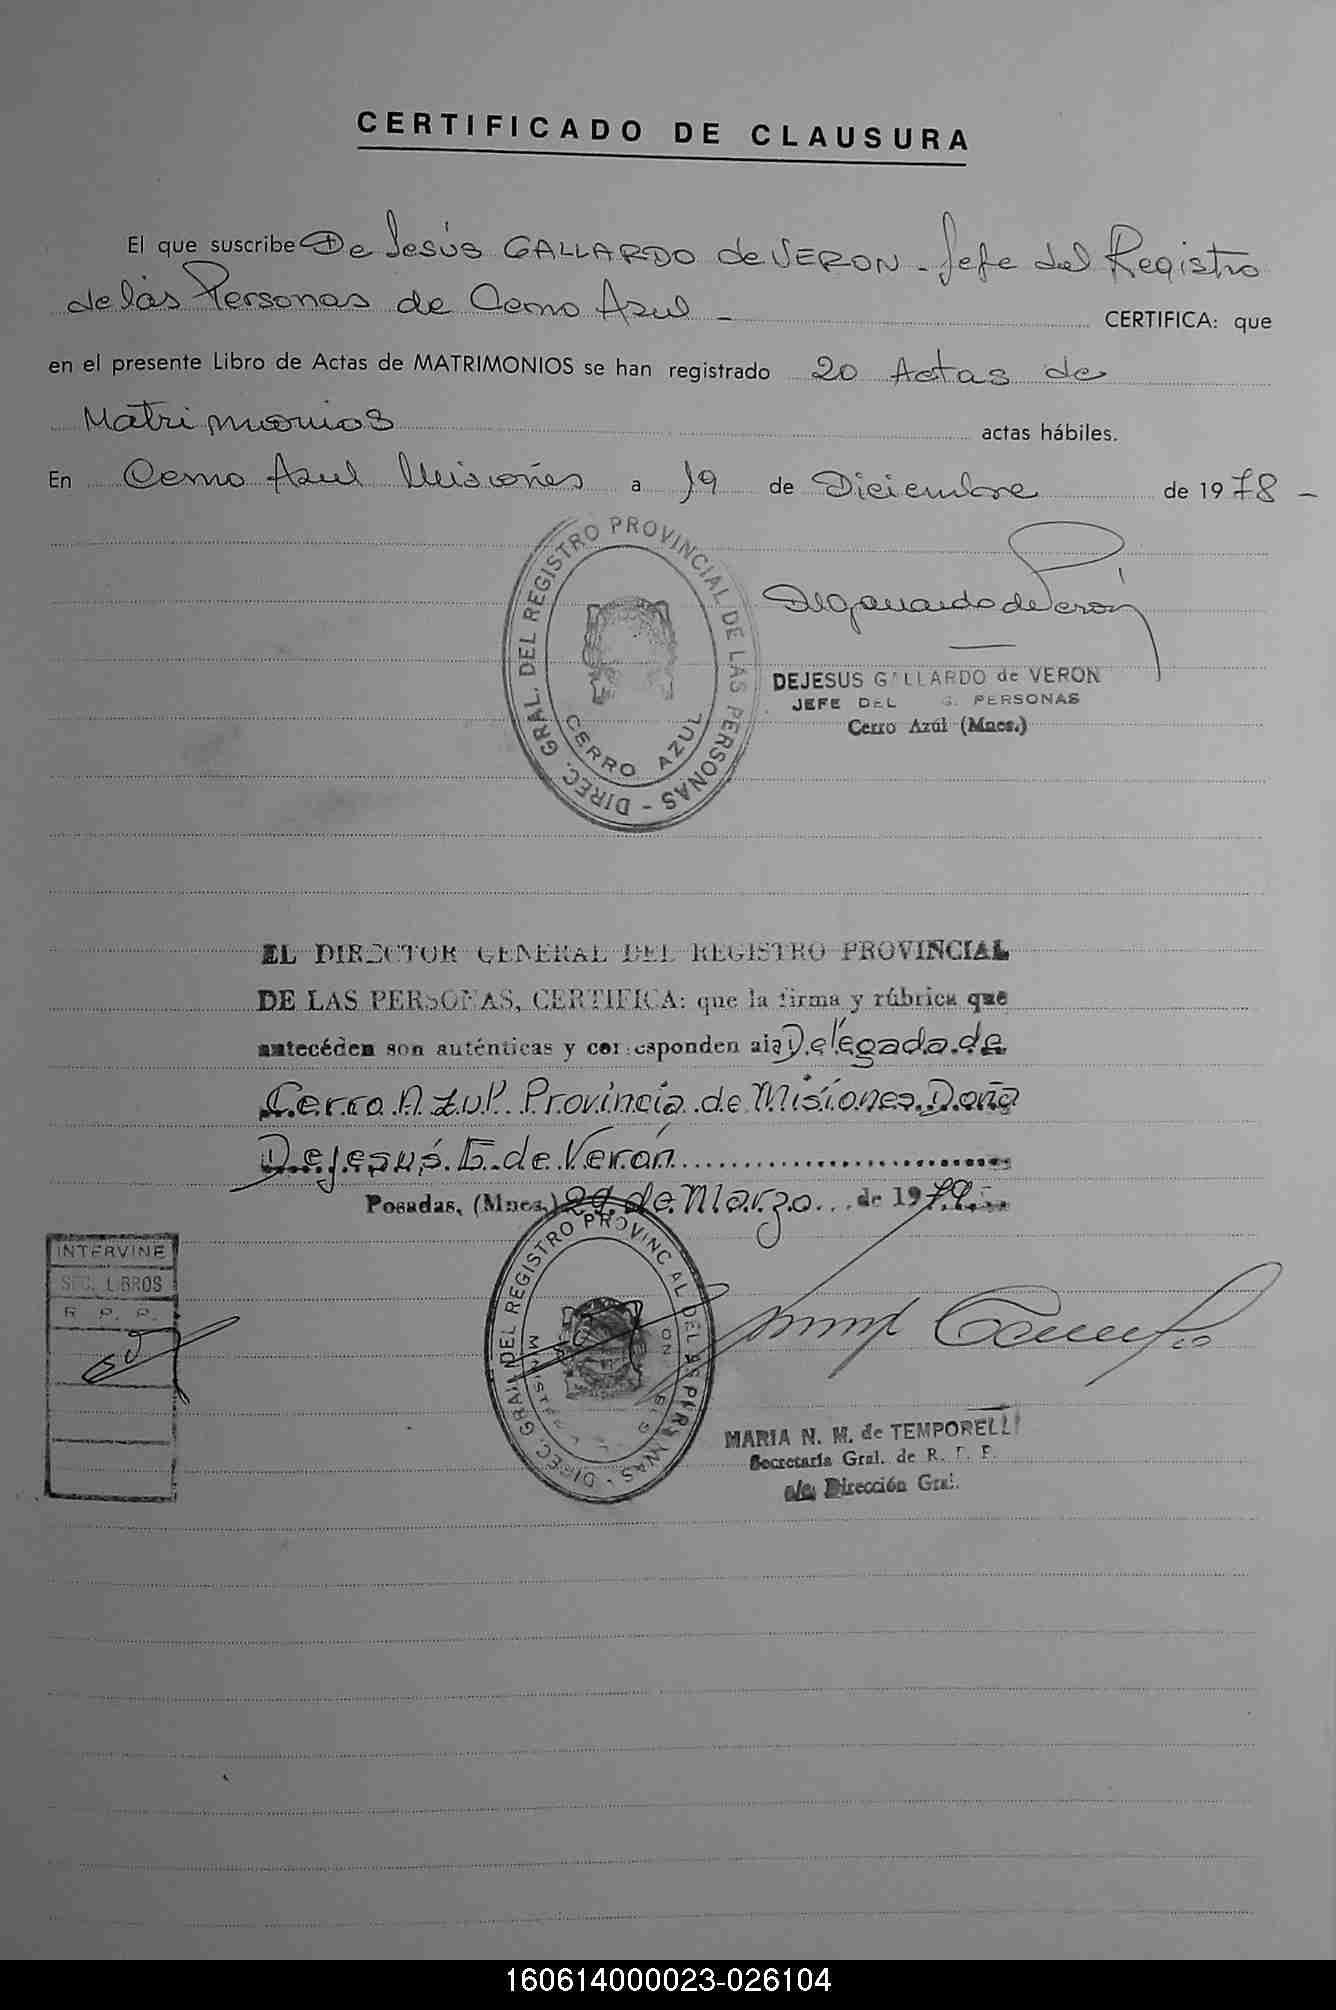 CERTIFICADO DE CLAUSURA
El que suscribe De Jesús GALLARDO de VERON - Jefe del Registro
de las Personas de Cerro Azul - CERTIFICA: que
en el presente Libro de Actas de MATRIMONIOS se han registrado 20 Actas de
Matrimonios actas hábiles.
En Cerro Azul Misiones a 19 de Diciembre de 1978 -
DIREC. GRAL. DEL REGISTRO PROVINCIAL DE LAS PERSONAS -
CERRO AZUL
DGallardo de Verón
DEJESUS GALLARDO de VERON
JEFE DEL G. PERSONAS
Cerro Azúl (Mnes.)
EL DIRECTOR GENERAL DEL REGISTRO PROVINCIAL
DE LAS PERSONAS, CERTIFICA: que la firma y rúbrica que
antecéden son auténticas y corresponden a la Delegada de
Cerro Azul Provincia de Misiones Doña
Dejesús G. de Verón
Posadas, (Mnes.) 29 de Marzo de 1979.-
INTERVINE
SEC. LIBROS
R. P. P.
DIREC. GRAL. DEL REGISTRO PROVINCIAL DE LAS PERSONAS -
MARIA N. M. de TEMPORELLI
Secretaria Gral. de R. P. P.
a/c. Dirección Gral.
160614000023-026104